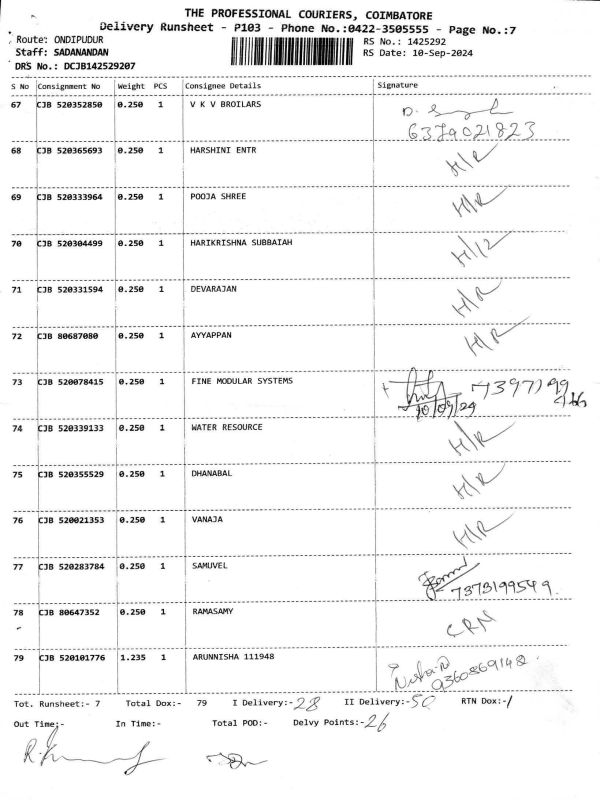 THE PROFESSIONAL COURIERS, COIMBATORE
Delivery Runsheet - P103 - Phone No.:0422-3505555 - Page No.:7
Route: ONDIPUDUR RS No.: 1425292
Staff: SADANANDAN RS Date: 10-Sep-2024
DRS No.: DCJB142529207
S No Consignment No Weight PCS Consignee Details Signature
67 CJB 520352850 0.250 1 V K V BROILARS
6379021823
68 CJB 520365693 0.250 1 HARSHINI ENTR H/R
69 CJB 520333964 0.250 1 POOJA SHREE H/R
70 CJB 520304499 0.250 1 HARIKRISHNA SUBBAIAH H/R
71 CJB 520331594 0.250 1 DEVARAJAN H/R
72 CJB 80687080 0.250 1 AYYAPPAN H/R
73 CJB 520078415 0.250 1 FINE MODULAR SYSTEMS
10/09/24
74 CJB 520339133 0.250 1 WATER RESOURCE H/R
75 CJB 520355529 0.250 1 DHANABAL H/R
76 CJB 520021353 0.250 1 VANAJA H/R
77 CJB 520283784 0.250 1 SAMUVEL
7373199549
78 CJB 80647352 0.250 1 RAMASAMY CRN
79 CJB 520101776 1.235 1 ARUNNISHA 111948 Nisha.N
9360869148
Tot. Runsheet:- 7 Total Dox:- 79 I Delivery:-28 II Delivery:-50 RTN Dox:-1
Out Time:- In Time:- Total POD:- Delvy Points:-26